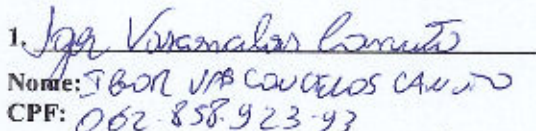 1. Igor Vasconcelos Canuto
Nome: IGOR VASCONCELOS CANUTO
CPF: 062.858.923-93